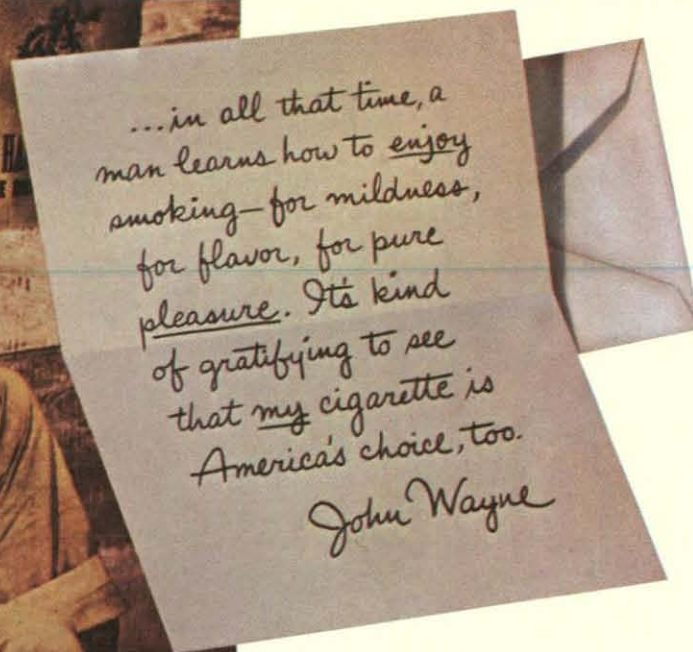 ...in all that time, a
man learns how to enjoy
smoking—for mildness,
for flavor, for pure
pleasure. It's kind
of gratifying to see
that my cigarette is
America's choice, too.
John Wayne